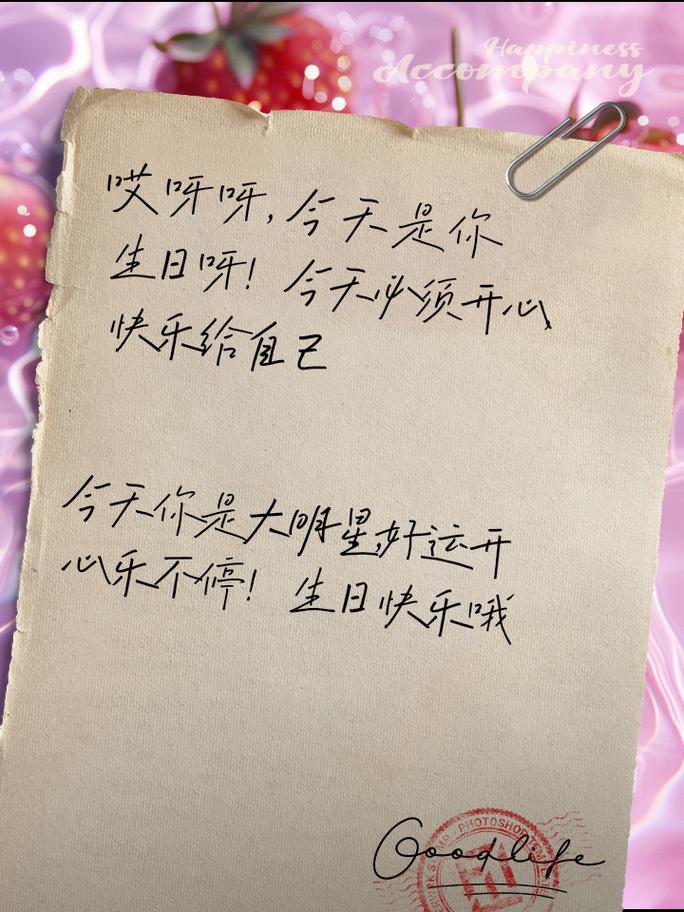 Happiness
Accompany
哎呀呀，今天是你
生日呀！ 今天必须开心
快乐给自己
今天你是大明星，好运开
心乐不停！ 生日快乐哦
PHOTOSHOP
Goodlife